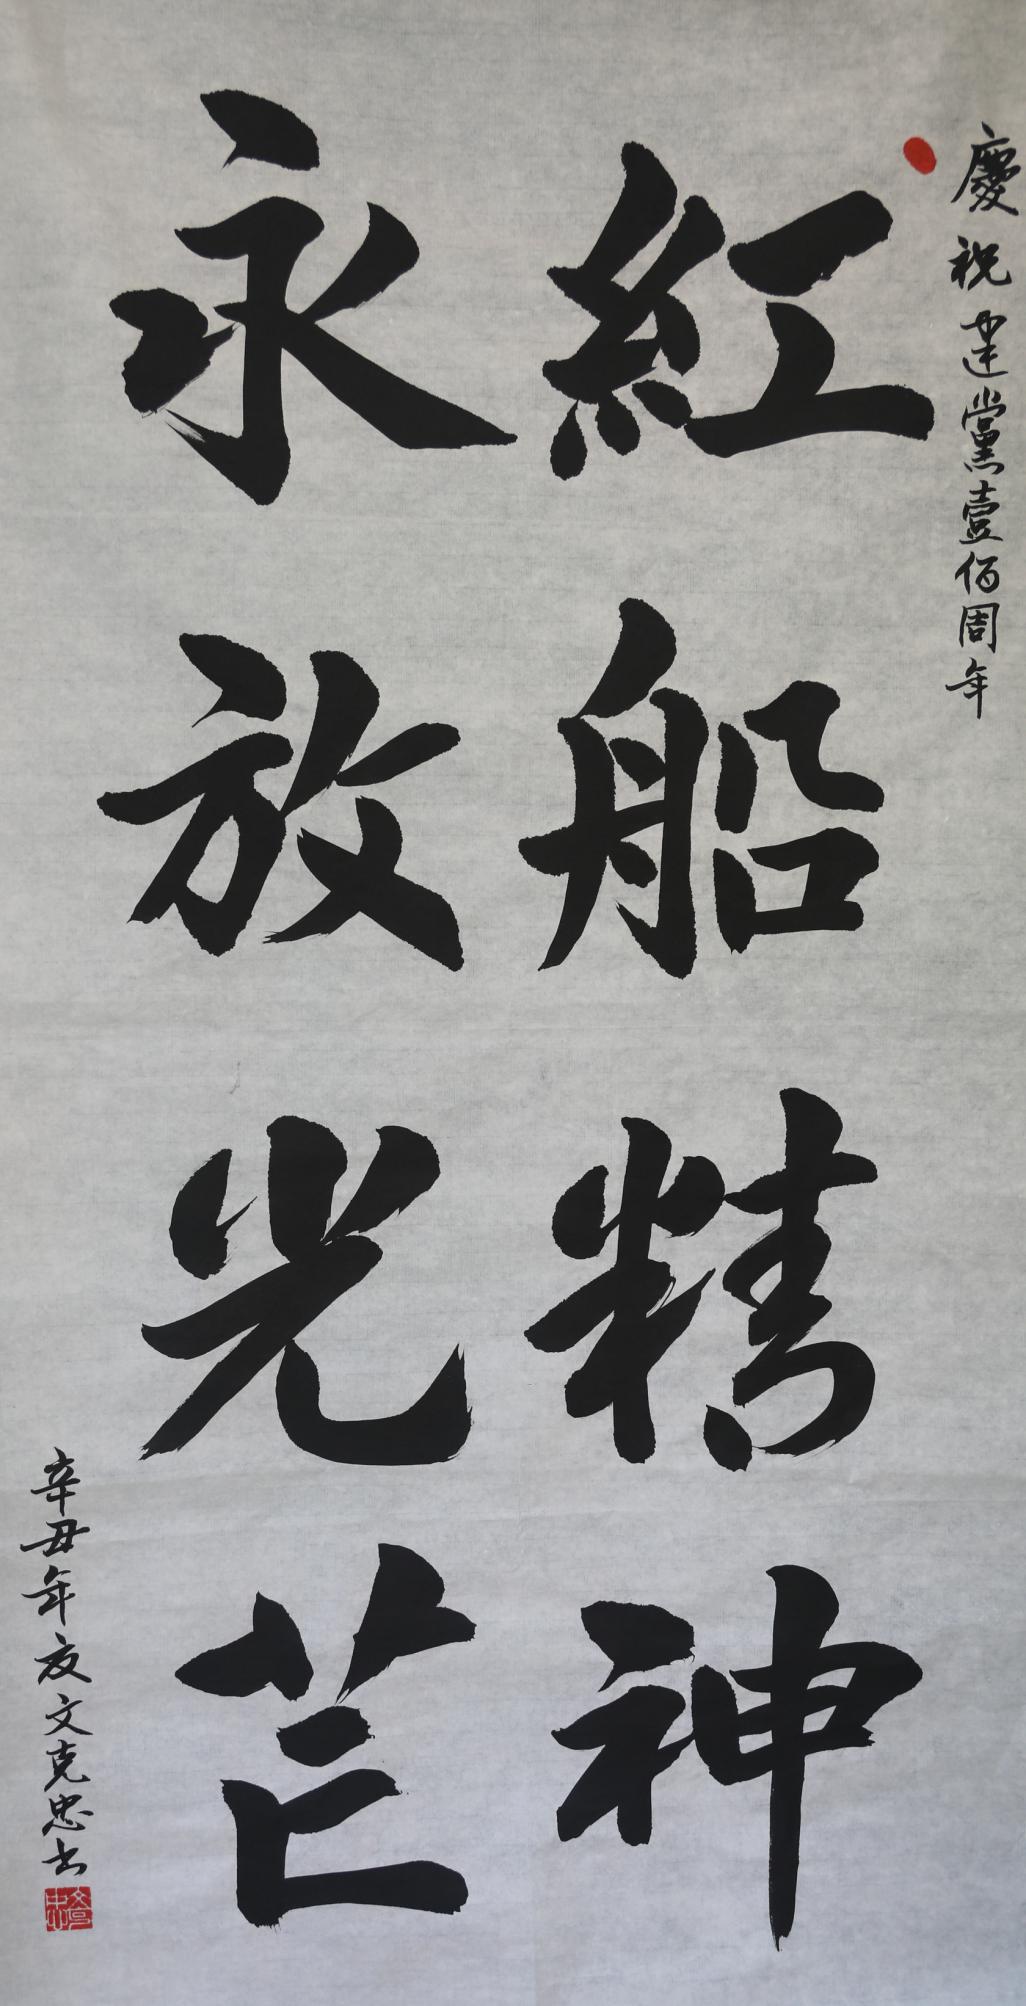 慶祝建黨壹佰周年
紅船精神
永放光芒
辛丑年夏文克忠书